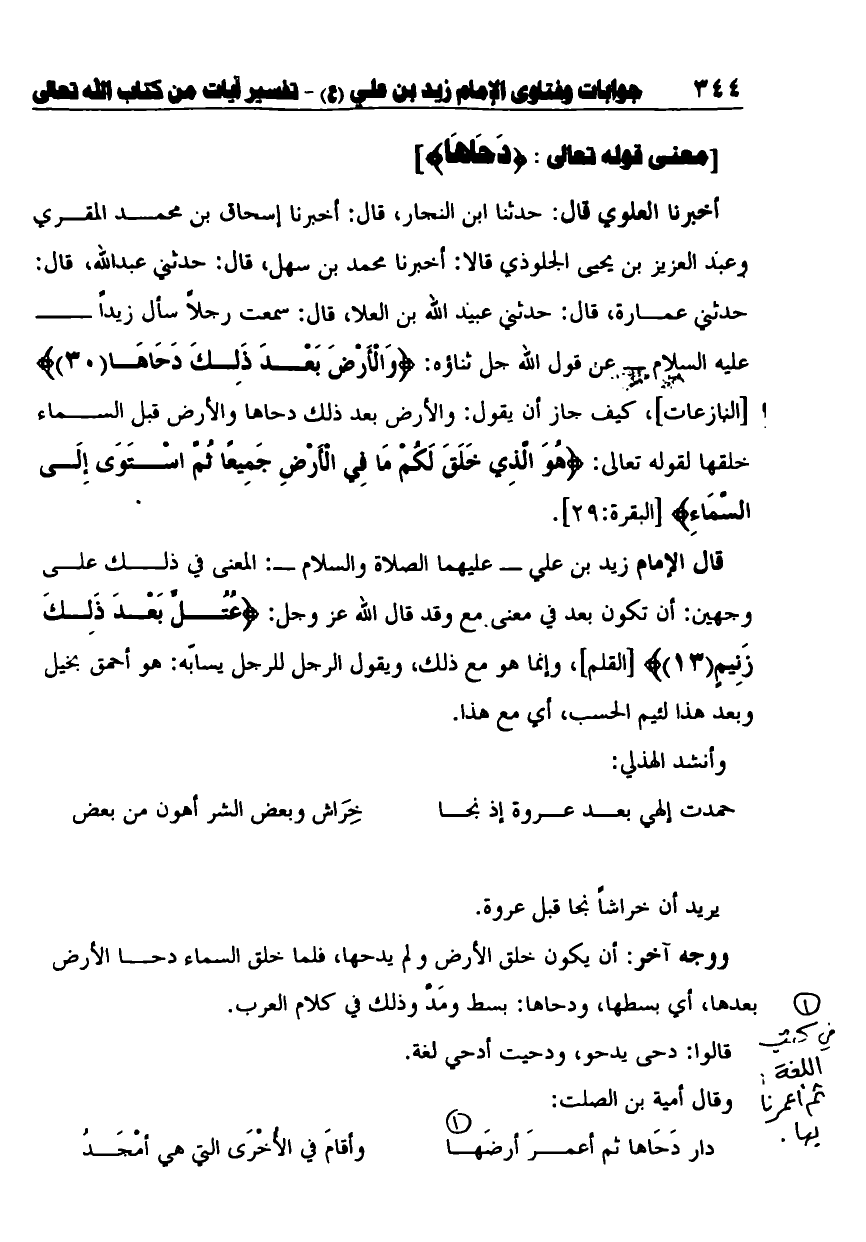 ٣٤٤ جوابات وفتاوى الإمام زيد بن علي (ع) - تفسير آيات من كتاب الله تعالى
[معنى قوله تعالى: ﴿دَحَاهَا﴾]
أخبرنا العلوي قال: حدثنا ابن النجار، قال: أخبرنا إسحاق بن محمد المقري
وعبد العزيز بن يحيى الجلوذي قالا: أخبرنا محمد بن سهل، قال: حدثني عبدالله، قال:
حدثني عمارة، قال: حدثني عبيد الله بن العلا، قال: سمعت رجلاً سأل زيداً —
عليه السلام — عن قول الله جل ثناؤه: ﴿وَالْأَرْضَ بَعْدَ ذَلِكَ دَحَاهَا(٣٠)﴾
[النازعات]، كيف جاز أن يقول: والأرض بعد ذلك دحاها والأرض قبل السماء
خلقها لقوله تعالى: ﴿هُوَ الَّذِي خَلَقَ لَكُمْ مَا فِي الْأَرْضِ جَمِيعًا ثُمَّ اسْتَوَى إِلَى
السَّمَاءِ﴾ [البقرة:٢٩].
قال الإمام زيد بن علي — عليهما الصلاة والسلام —: المعنى في ذلك على
وجهين: أن تكون بعد في معنى مع وقد قال الله عز وجل: ﴿عُتُلٍّ بَعْدَ ذَلِكَ
زَنِيمٍ(١٣)﴾ [القلم]، وإنما هو مع ذلك، ويقول الرجل للرجل يسابّه: هو أحمق بخيل
وبعد هذا لئيم الحسب، أي مع هذا.
وأنشد الهذلي:
حمدت إلهي بعد عروة إذ نجا خِرَاش وبعض الشر أهون من بعض
يريد أن خراشاً نجا قبل عروة.
ووجه آخر: أن يكون خلق الأرض ولم يدحها، فلما خلق السماء دحا الأرض
بعدها، أي بسطها، ودحاها: بسط ومَدَّ وذلك في كلام العرب.
قالوا: دحى يدحو، ودحيت أدحي لغة.
وقال أمية بن الصلت:
دار دَحَاها ثم أعمرَ أرضَها (١) وأقامَ في الأُخْرَى التي هي أمْجَدُ
(١)
في كتب
اللغة:
ثم أعمرنا
بها.